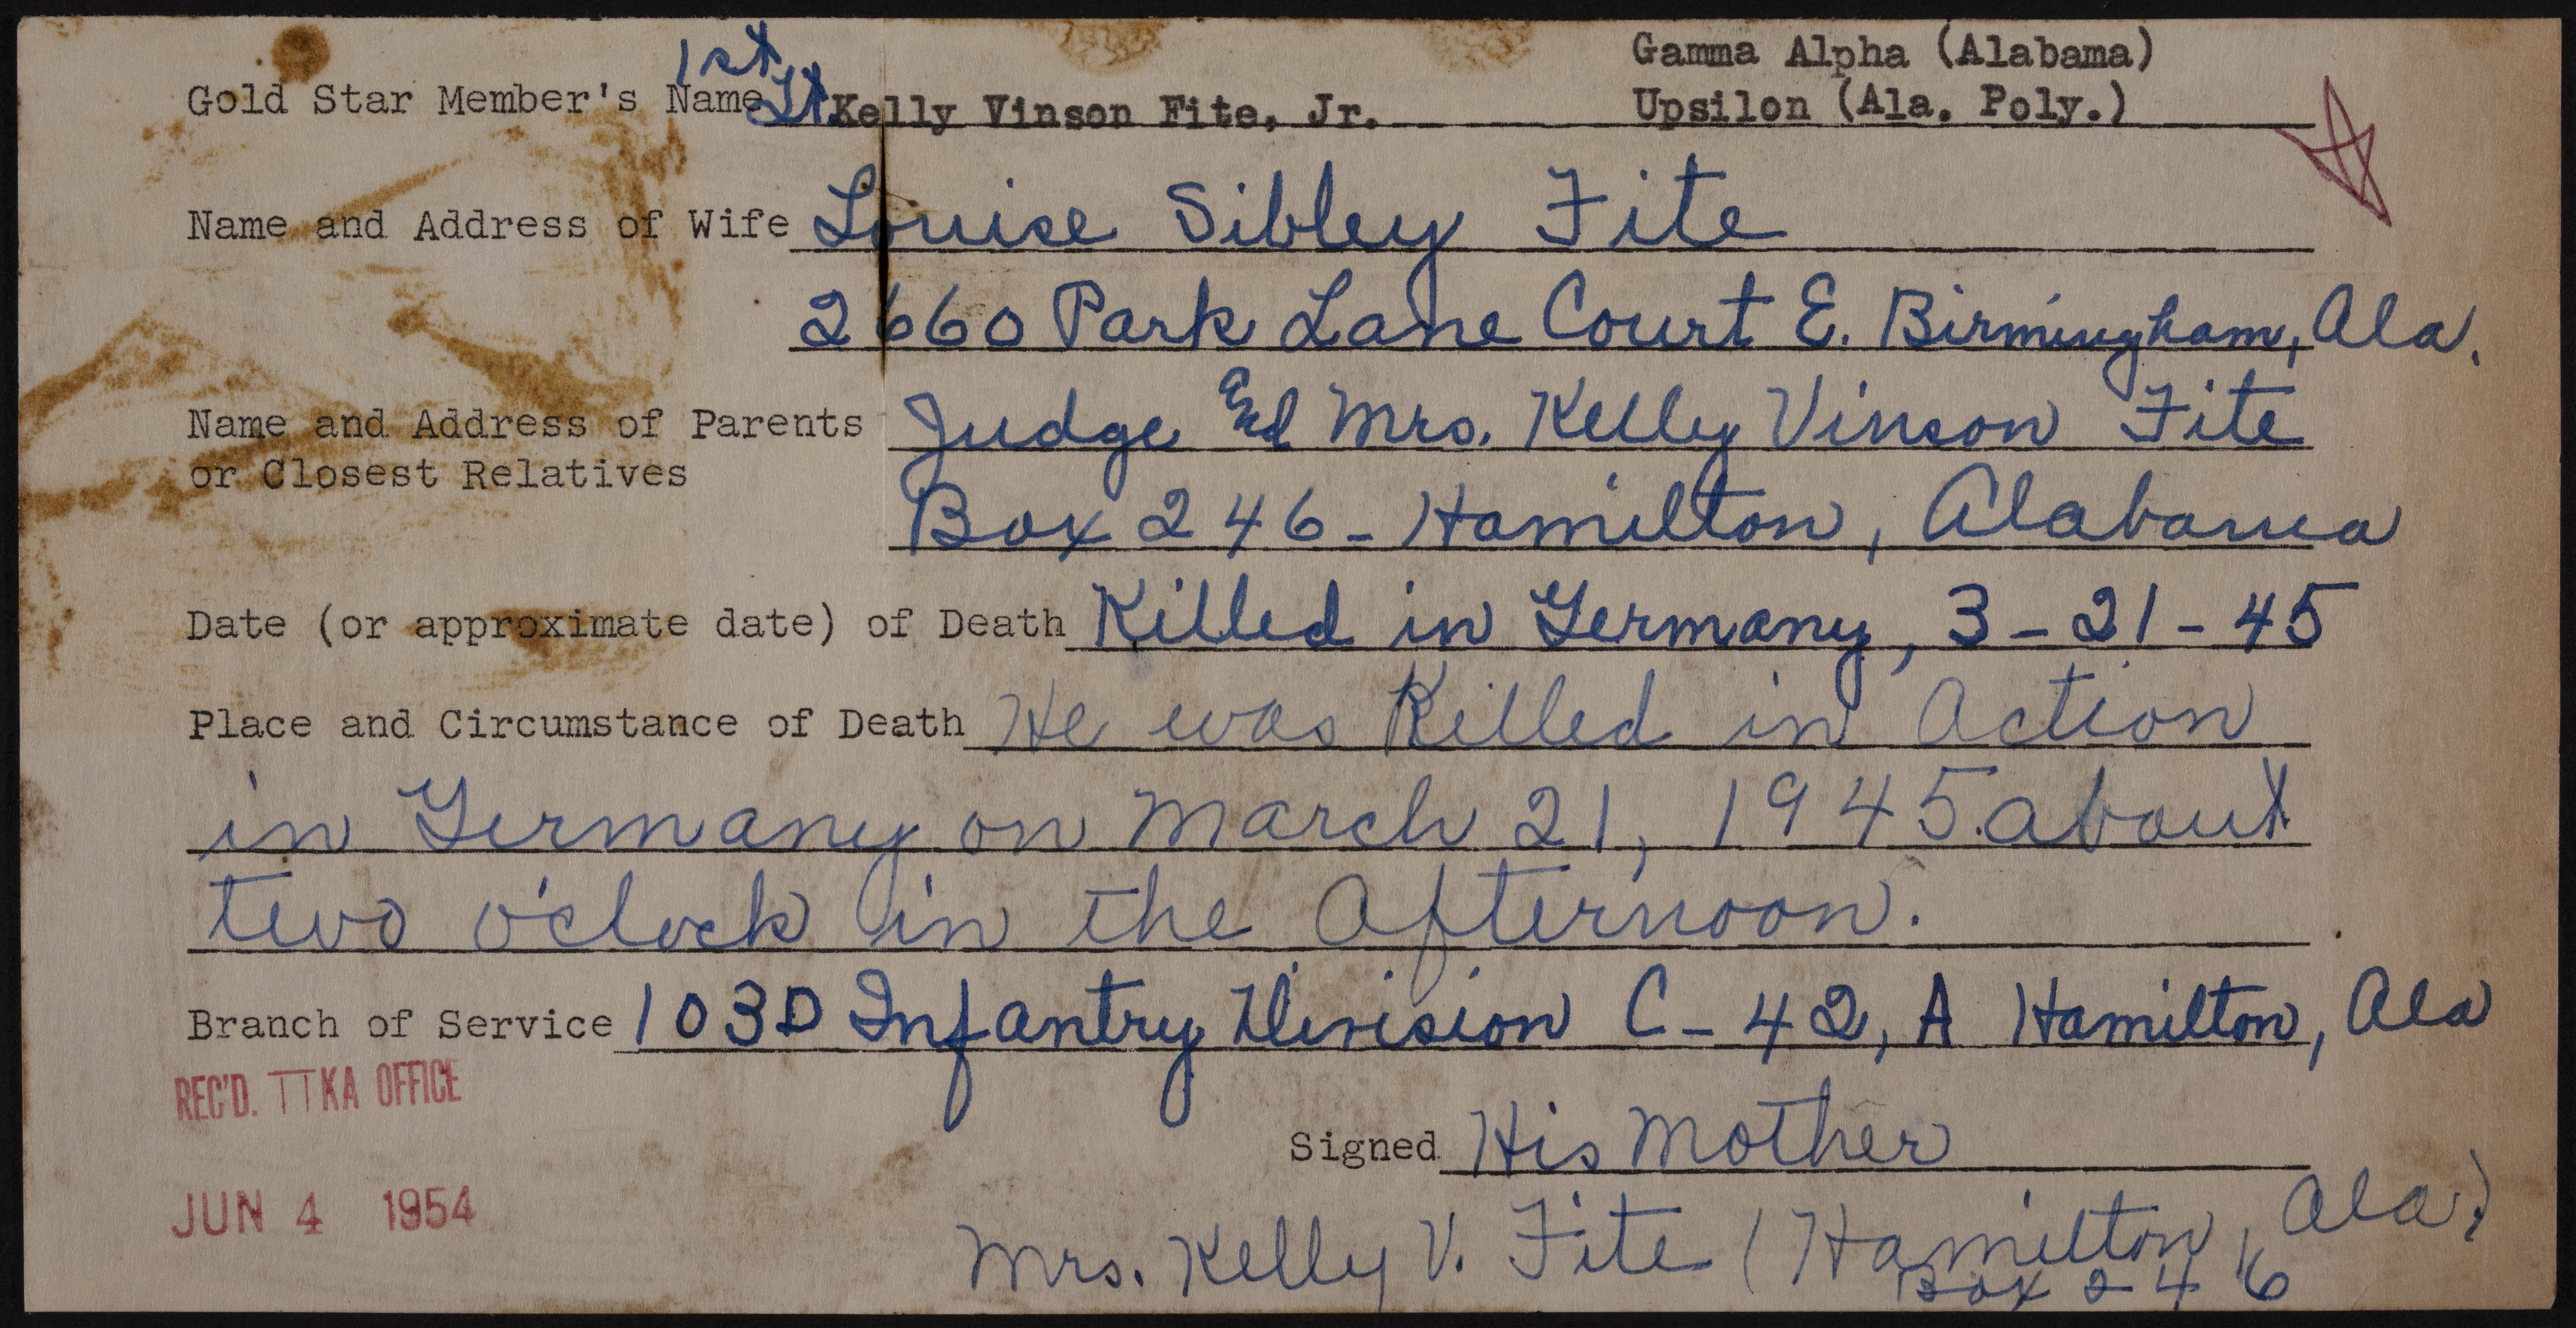 Gamma Alpha (Alabama)
Gold Star Member's Name 1st Lt. Kelly Vinson Fite, Jr. Upsilon (Ala. Poly.)
Name and Address of Wife Louise Sibley Fite
2660 Park Lane Court E. Birmingham, Ala.
Name and Address of Parents Judge and Mrs. Kelly Vinson Fite
or Closest Relatives
Box 246 - Hamilton, Alabama
Date (or approximate date) of Death Killed in Germany, 3-21-45
Place and Circumstance of Death He was Killed in Action
in Germany on March 21, 1945 about
two o'clock in the Afternoon.
Branch of Service 103D Infantry Division C-42, A Hamilton, Ala
REC'D. ΠKA OFFICE
Signed His Mother
JUN 4 1954
Mrs. Kelly V. Fite (Hamilton, Ala.)
Box 246